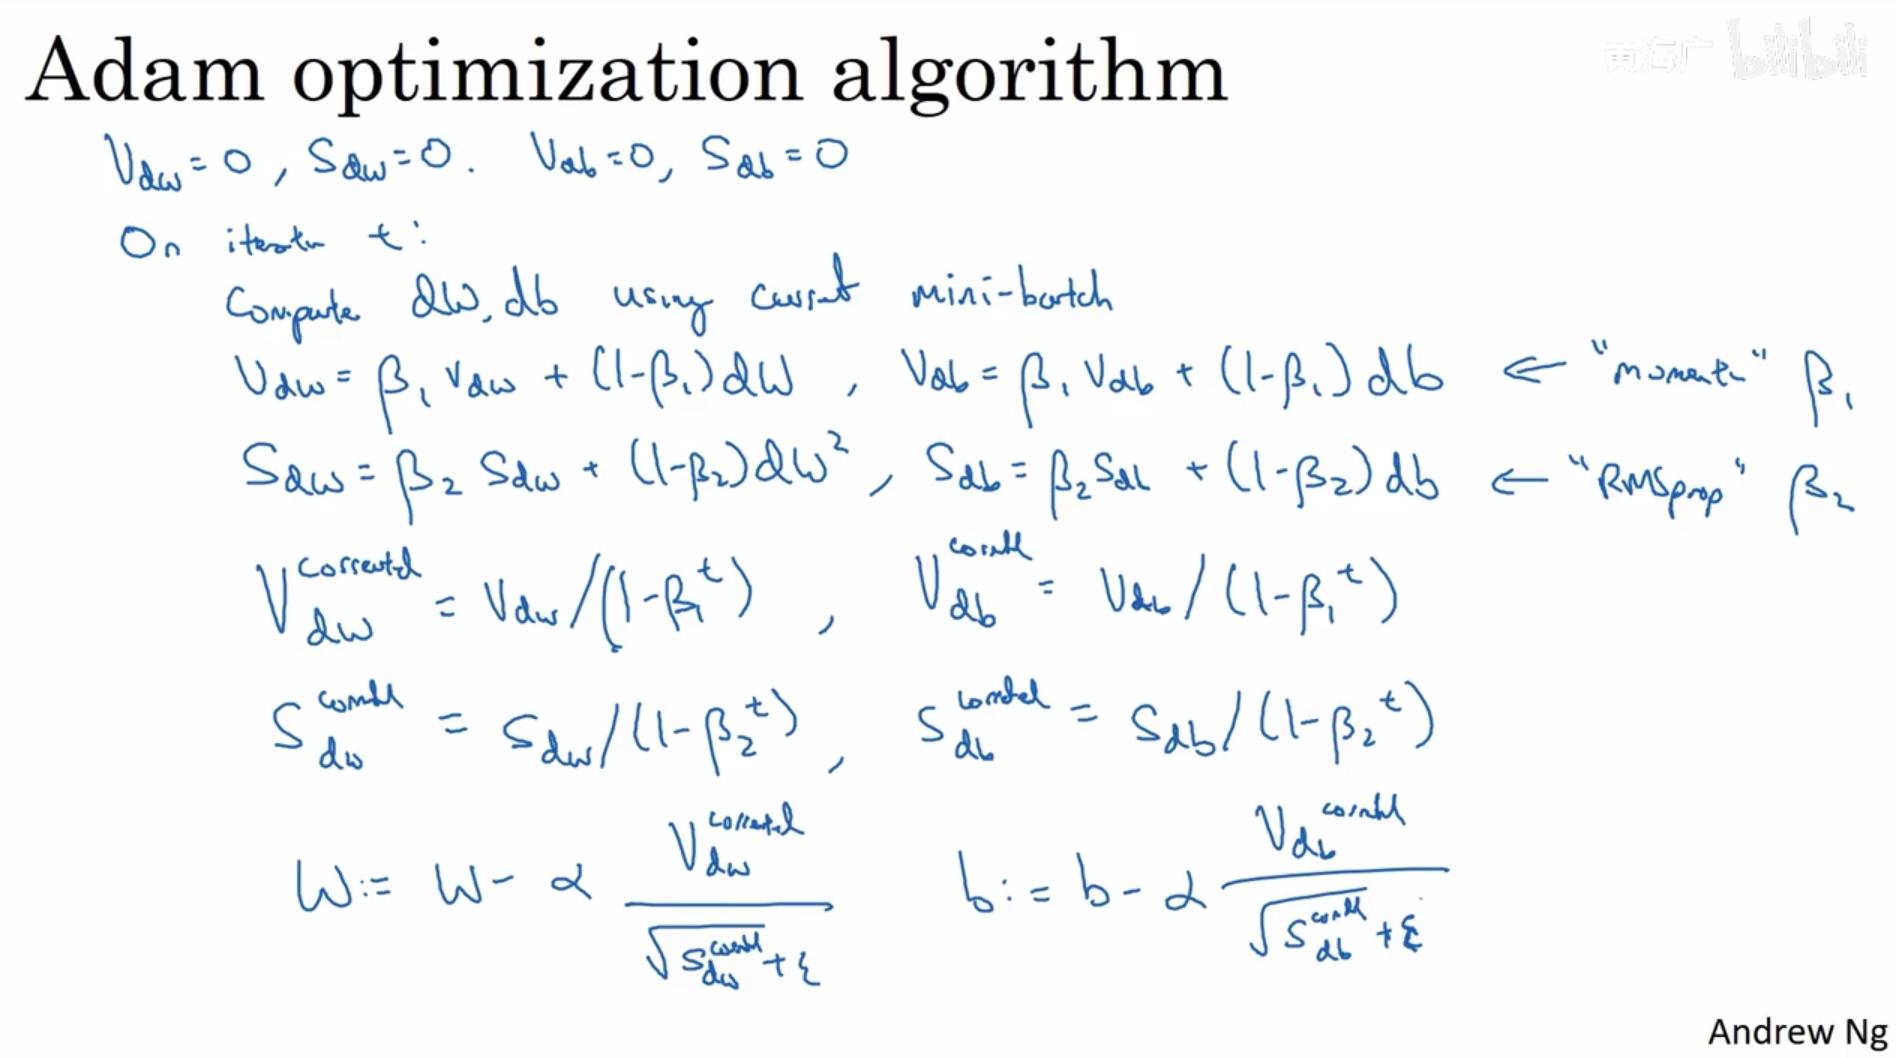 Adam optimization algorithm
黄海广 bilibili
V_dw = 0, S_dw = 0. V_db = 0, S_db = 0
On iteratn t:
Compute dW, db using current mini-batch
V_dw = β₁ V_dw + (1-β₁) dW, V_db = β₁ V_db + (1-β₁) db ← "moment" β₁
S_dw = β₂ S_dw + (1-β₂) dW², S_db = β₂ S_db + (1-β₂) db ← "RMSprop" β₂
V_dw^corrected = V_dw / (1-β₁^t), V_db^corrected = V_db / (1-β₁^t)
S_dw^corrected = S_dw / (1-β₂^t), S_db^corrected = S_db / (1-β₂^t)
W := W - α V_dw^corrected / (√S_dw^corrected + ε) b := b - α V_db^corrected / (√S_db^corrected + ε)
Andrew Ng